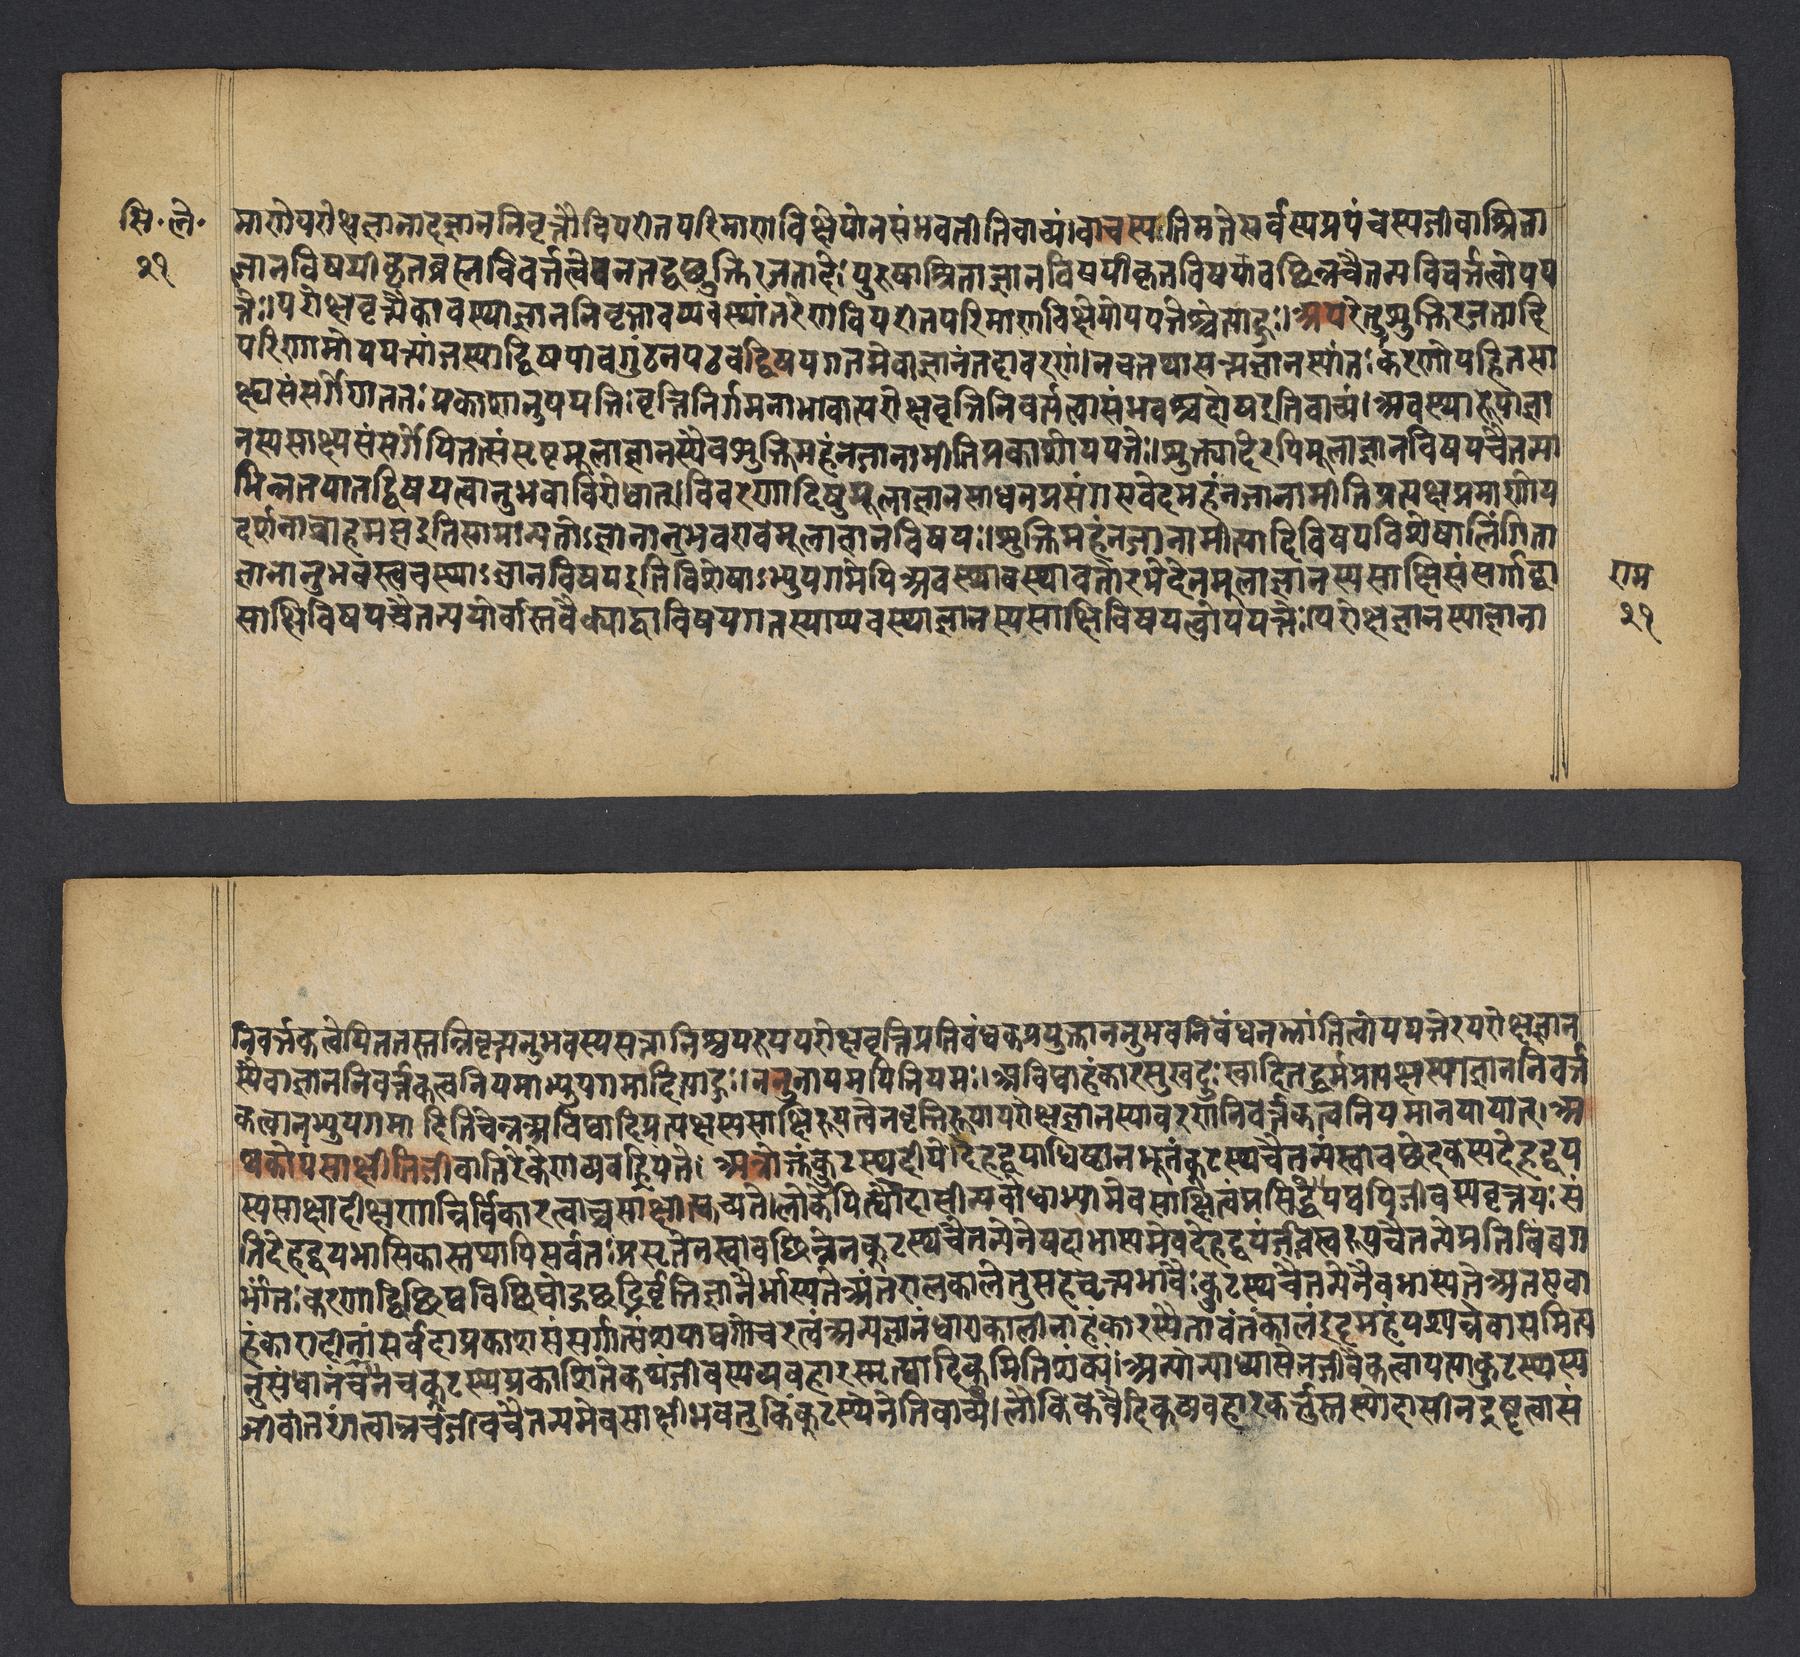 सि॰ ले॰
२१
माणेपरोक्षज्ञानादज्ञाननिवृत्तौविपरीतपरिमाणविक्षेपोनसंभवतीतिवाच्यं।वाचस्पतिमतेसर्वस्यप्रपंचस्यजीवाश्रिता
ज्ञानविषयीकृतब्रह्मविवर्त्तत्वेपनतद्वच्छुक्तिरजतादेः पुरुषाश्रिताज्ञानविषयीकृतविषयावच्छिन्नचैतन्यविवर्त्तत्वोपप
त्तेः।परोक्षवृत्त्यैकावस्थाज्ञाननिवृत्तावप्यवस्थांतरेणविपरीतपरिमाणविक्षेपोपपत्तेश्चेत्याहुः।अपरेतुशुक्तिरजतादि
परिणामोपपत्त्यांजस्याद्विषयावगुंठनपटवद्विषयगतमेवाज्ञानंतदावरणं।नचतथासत्यज्ञानस्यांतःकरणोपहितसा
क्ष्यसंसर्गेणततःप्रकाशानुपपत्तिःवृत्तिनिर्गमनाभावात्परोक्षवृत्तिनिवर्तत्वासंभवश्चदोषइतिवाच्यं।अवस्थारूपाज्ञा
नस्यसाक्ष्यसंसर्गेपितत्संसृष्टमूलाज्ञानस्यैवशुक्तिमहंनजानामीतिप्रकाशोपपत्तेः।शुक्त्यादेरपिमूलाज्ञानविषयचैतन्या
भिन्नतयातद्विषयत्वानुभवाविरोधात्।विवरणादिषुमूलाज्ञानसाधनप्रसंगएवेदमहंनजानामीतिप्रत्यक्षप्रमाणोप
दर्शनाच्चाहमज्ञइतिसामान्यतोऽज्ञानानुभवएवमूलाज्ञानविषयः।शुक्तिमहंनजानामीत्यादिविषयविशेषालिंगिता
ज्ञानानुभवस्त्ववस्थाऽज्ञानविषयइतिविशेषाऽभ्युपगमेपिअवस्थावस्थावतोरभेदेनमूलाज्ञानस्यसाक्षिसंसर्गाद्वा
साक्षिविषयचैतन्ययोर्वास्तवैक्याद्वाविषयगतस्याप्यवस्थाज्ञानस्यसाक्षिविषयत्वोपपत्तेः।परोक्षज्ञानस्याज्ञाना
राम
२१
निवर्त्तकत्वेपिततस्तन्निवृत्त्यनुभवस्यसत्तानिश्चयरूपपरोक्षवृत्तिप्रतिबंधकप्रयुक्ताननुभवनिबंधनभ्रांतित्वोपपत्तेरपरोक्षज्ञान
स्यैवाज्ञाननिवर्त्तकत्वनियमाभ्युपगमादित्याहुः।ननुनायमपिनियमः।अविद्याहंकारसुखदुःखादितद्धर्मप्रत्यक्षस्याज्ञाननिवर्त्त
कत्वानभ्युपगमा दितिचेन्नअविद्यादिप्रत्यक्षस्यसाक्षिरूपत्वेनवृत्तिरूपापरोक्षज्ञानस्यावरणनिवर्त्तकत्वनियमानपायात्।अ
थकोयंसाक्षीतिजीवातिरेकेणव्यवह्रियते। अत्रोक्तंकूटस्थदीपे।देहद्वयाधिष्ठानभूतंकूटस्थचैतन्यंस्वावच्छेदकस्यदेहद्वय
स्यसाक्षादीक्षणान्निर्विकारत्वाच्चसाक्षीत्युच्यते।लोकेपित्यौदासीन्यबोधाभ्यामेवसाक्षित्वंप्रसिद्धंयद्यपिजीवस्यवृत्तयःसं
तिदेहद्वयभासिकास्तथापिसर्वतःप्रसृतेनस्वावच्छिन्नेनकूटस्थचैतन्येनेषदाभास्यमेवदेहद्वयंजीवस्वरूपचैतन्यप्रतिबिंबग
र्भांतःकरणाद्विच्छिद्यविच्छिद्योद्गच्छद्भिर्वृत्तिज्ञानैर्भास्यतेअंतरालकालेतुसहवृत्त्यभावैःकूटस्थचैतन्येनैवभास्येतेअतएवा
हंकारादीनांसर्वदाप्रकाशसंसर्गात्संशयाद्यगोचरत्वंअन्यज्ञानधाराकालीनाहंकारस्यैतावंतंकालंइदमहंपश्यन्नेवासमित्य
नुसंधानंचनचकूटस्थप्रकाशितेकथंजीवस्यव्यवहारस्मृत्यादिकमितिशंक्यं।अन्योन्याध्यासेनजीवैकत्वापत्त्याकूटस्थस्य
जीवांतरंगत्वान्नचजीवचैतन्यमेवसाक्षीभवतुकिंकूटस्थेनेतिवाच्यं।लौकिकवैदिकव्यवहारकर्त्तुस्तस्योदासीनद्रष्टृत्वासं